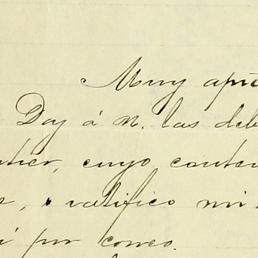 Muy apre
Doy á V. las deb
cuyo conten
ratifico mi
por correo.